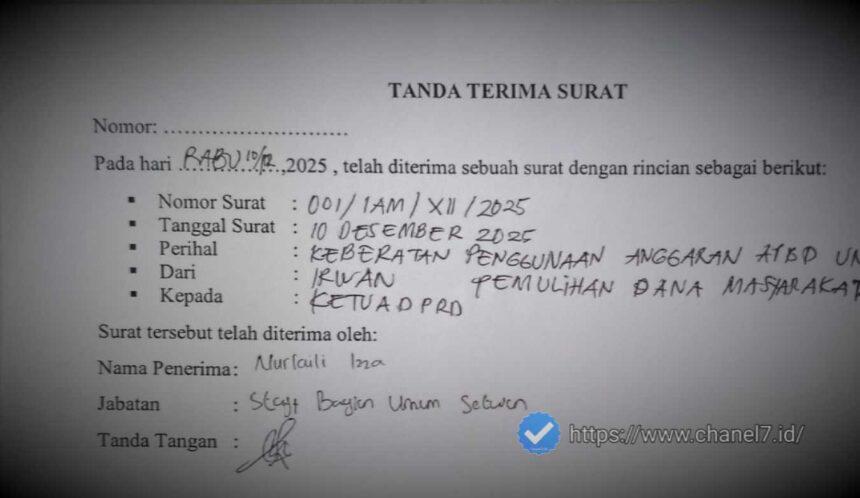 TANDA TERIMA SURAT
Nomor: ............................
Pada hari RABU 10/12, 2025 , telah diterima sebuah surat dengan rincian sebagai berikut:
▪ Nomor Surat : 001/IAM/XII/2025
▪ Tanggal Surat : 10 DESEMBER 2025
▪ Perihal : KEBERATAN PENGGUNAAN ANGGARAN APBD UN
PEMULIHAN DANA MASYARAKAT
▪ Dari : IRWAN
▪ Kepada : KETUA DPRD
Surat tersebut telah diterima oleh:
Nama Penerima : Izza
Jabatan : Staff Bagian Umum Setwan
Tanda Tangan :
https://www.chanel7.id/